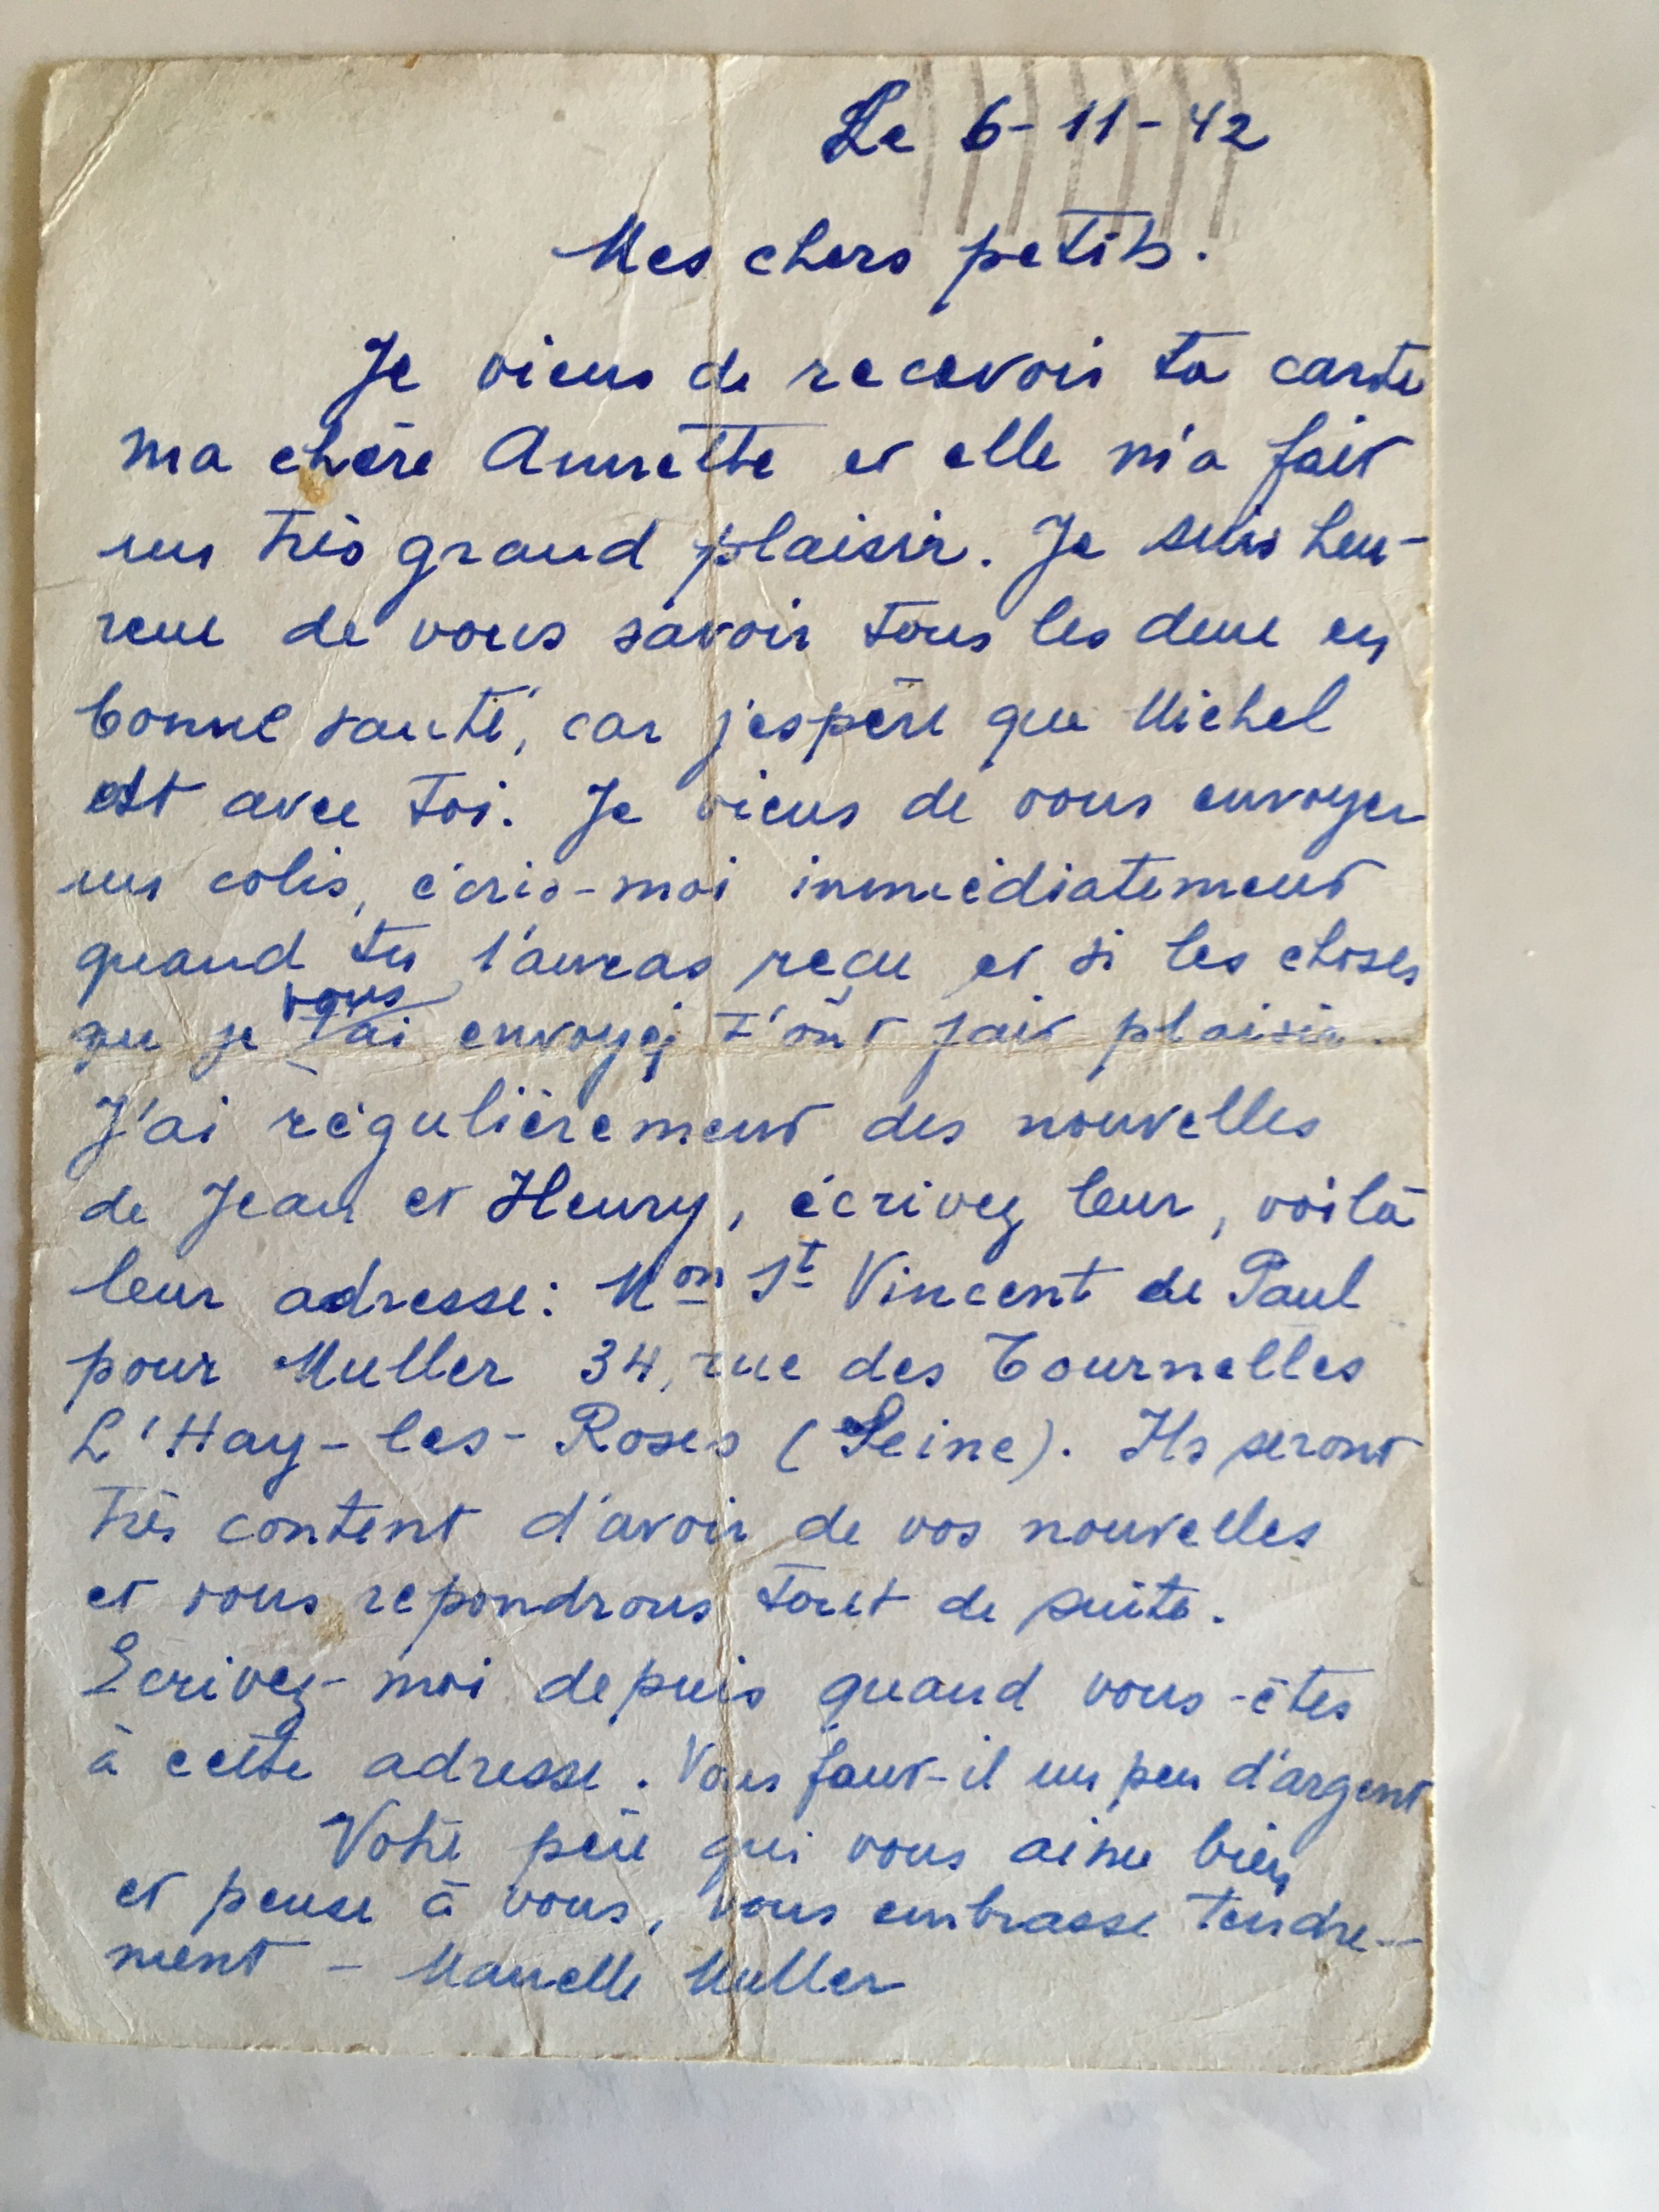 Le 6-11-42
Mes chers petits.
Je viens de recevoir ta carte
ma chère Annette et elle m'a fait
un très grand plaisir. Je suis heu-
reux de vous savoir tous les deux en
bonne santé, car j'espère que Michel
est avec toi. Je viens de vous envoyer
un colis, écris-moi immédiatement
quand tu l'auras reçu et si les choses
vous
que je t'ai envoyéj t'ont fait plaisir.
J'ai régulièrement des nouvelles
de Jean et Henry, écrivez leur, voilà
leur adresse: Mon St Vincent de Paul
pour Muller 34, rue des Tournelles
L'Hay-les-Roses (Seine). Ils seront
très content d'avoir de vos nouvelles
et vous repondrons tout de suite.
Ecrivez-moi depuis quand vous-êtes
à cette adresse. Vous faut-il un peu d'argent
Votre père qui vous aime bien
et pense à vous, vous embrasse tendre-
ment - Manelle Muller